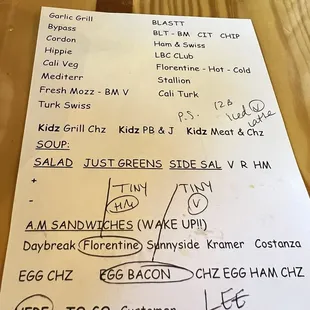 Garlic Grill
BLASTT
Bypass
BLT - BM CIT CHIP
Cordon
Ham & Swiss
Hippie
LBC CLub
Cali Veg
Florentine - Hot - Cold
Mediterr
Stallion
Fresh Mozz - BM V
Cali Turk
Turk Swiss
P.S. 12B
Iced V
Latte
Kidz Grill Chz Kidz PB & J Kidz Meat & Chz
SOUP:
SALAD JUST GREENS SIDE SAL V R HM
+
-
TINY TINY
HM V
A.M SANDWICHES (WAKE UP!!)
Daybreak Florentine Sunnyside Kramer Costanza
EGG CHZ EGG BACON CHZ EGG HAM CHZ
HERE TO GO Customer LEE